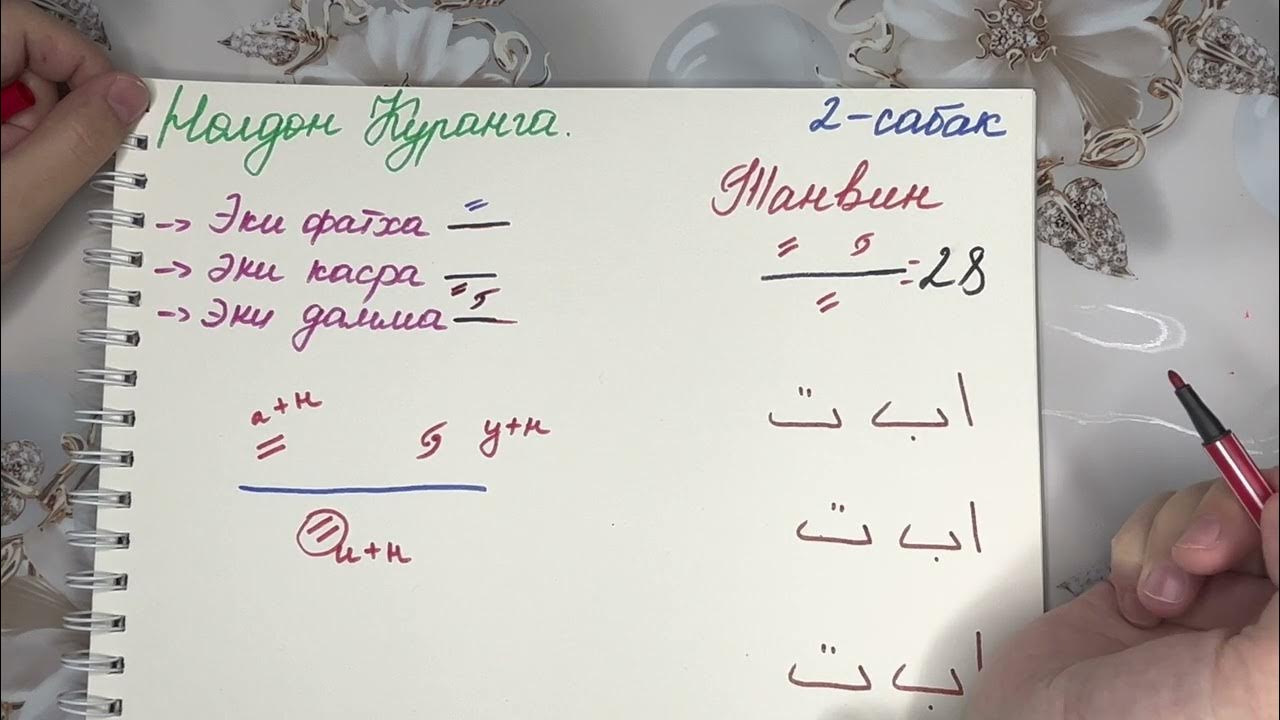 Нолдон Куранга.
2-сабак
Танвин
-> Эки фатха
-> Эки касра
-> Эки дамма
= 28
а+н
у+н
и+н
ا ب ت
ا ب ت
ا ب ت